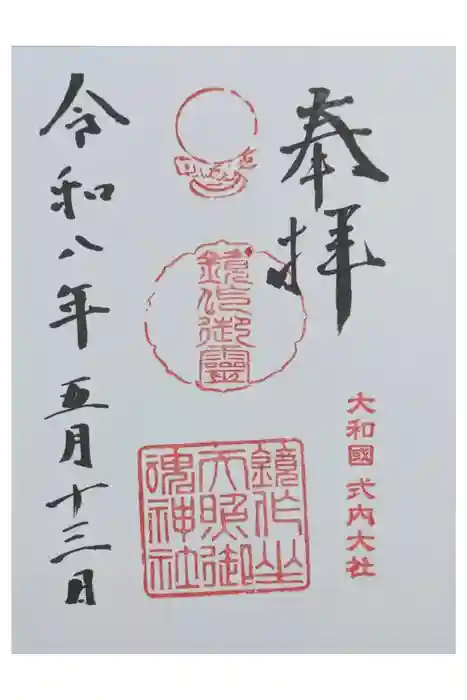 奉拝
大和國 式内大社
鏡作御靈
鏡作坐
天照御
魂神社
令和八年 五月十三日